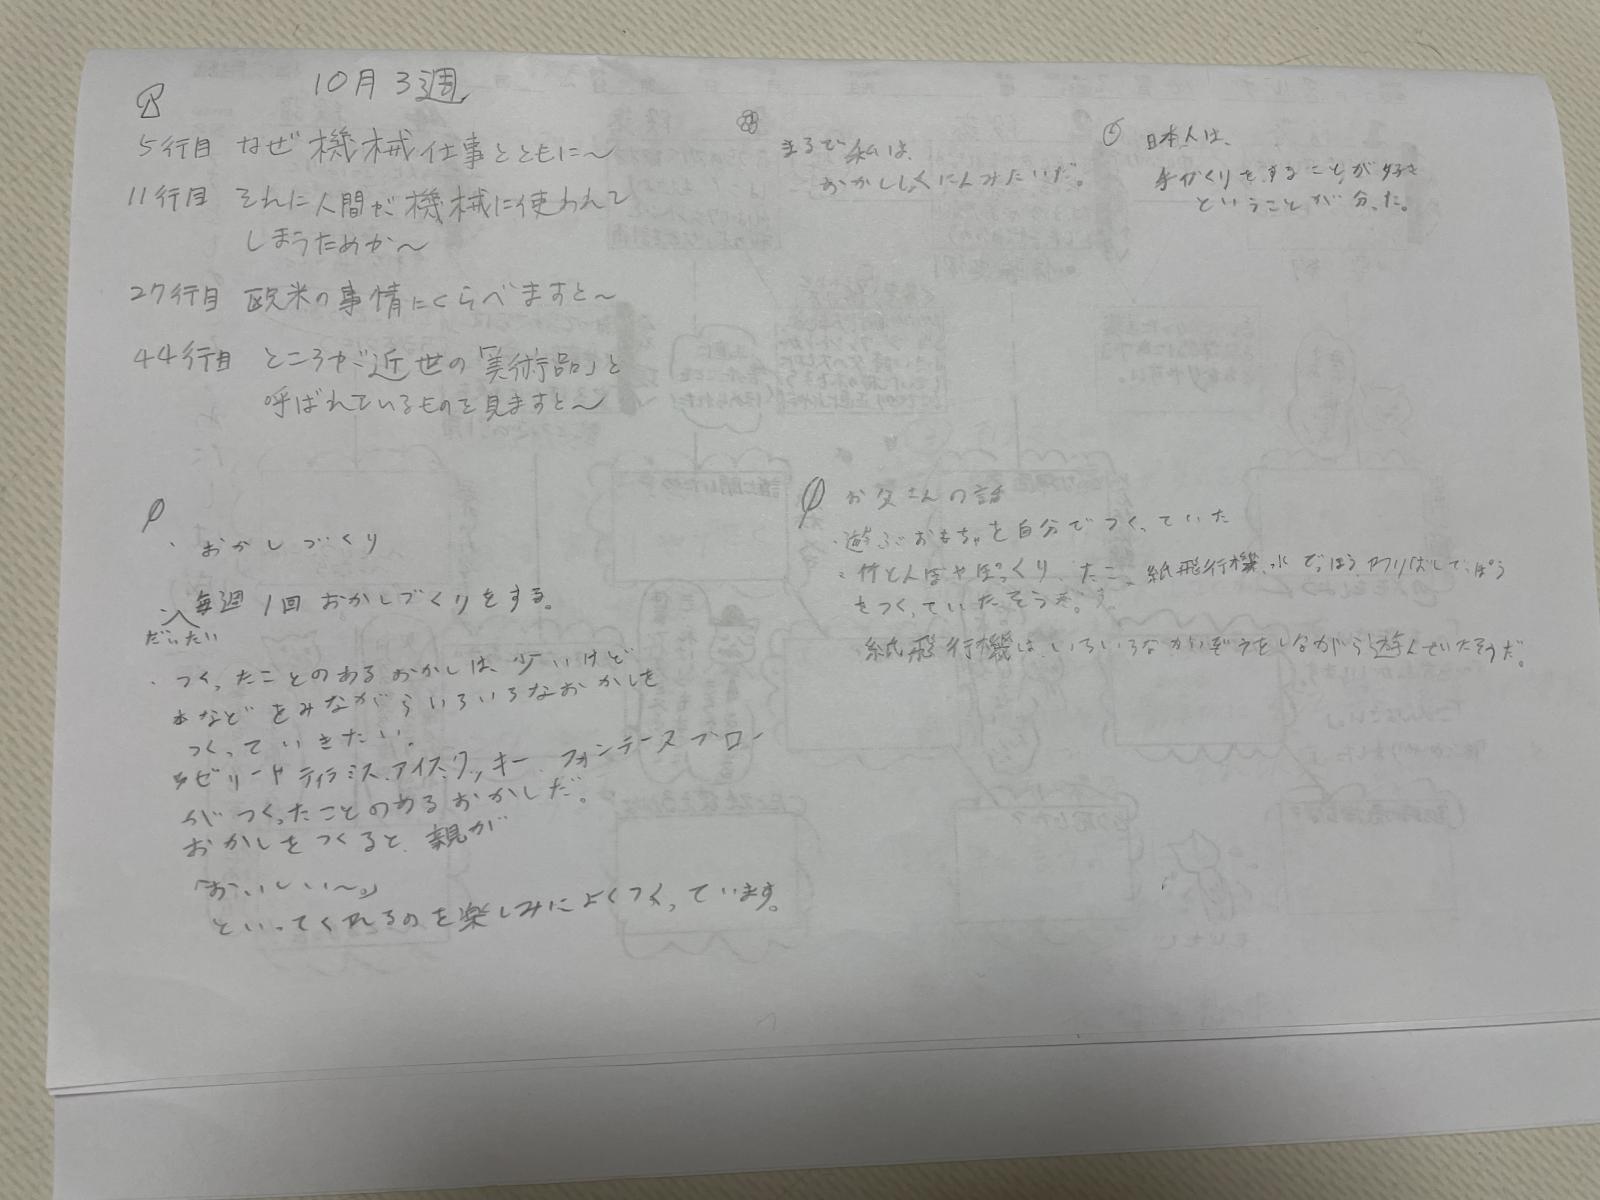 10月3週
5行目 なぜ機械仕事とともに～
11行目 それに人間が機械に使われて
しまうためか～
27行目 欧米の事情にくらべますと～
44行目 ところが近世の「美術品」と
呼ばれているものを見ますと～
まるで私は、
おかししょくにんみたいだ。
日本人は、
手づくりをすることが好き
ということが分った。
・おかしづくり
毎週1回おかしづくりをする。
だいたい
・つくったことのあるおかしは、少いけど
本などをみながらいろいろなおかしを
つくっていきたい。
ゼリーやティラミス、アイス、クッキー、フォンテースブロー
がつくったことのあるおかしだ。
おかしをつくると、親が
「おいしい～。」
といってくれるのを楽しみによくつくっています。
お父さんの話
・遊ぶおもちゃを自分でつくっていた
・竹とんぼやぽっくり、たこ、紙飛行機、水でっぽう、わりばしでっぽう
をつくっていたそうだ。
紙飛行機は、いろいろなかいぞうをしながら遊んでいたそうだ。